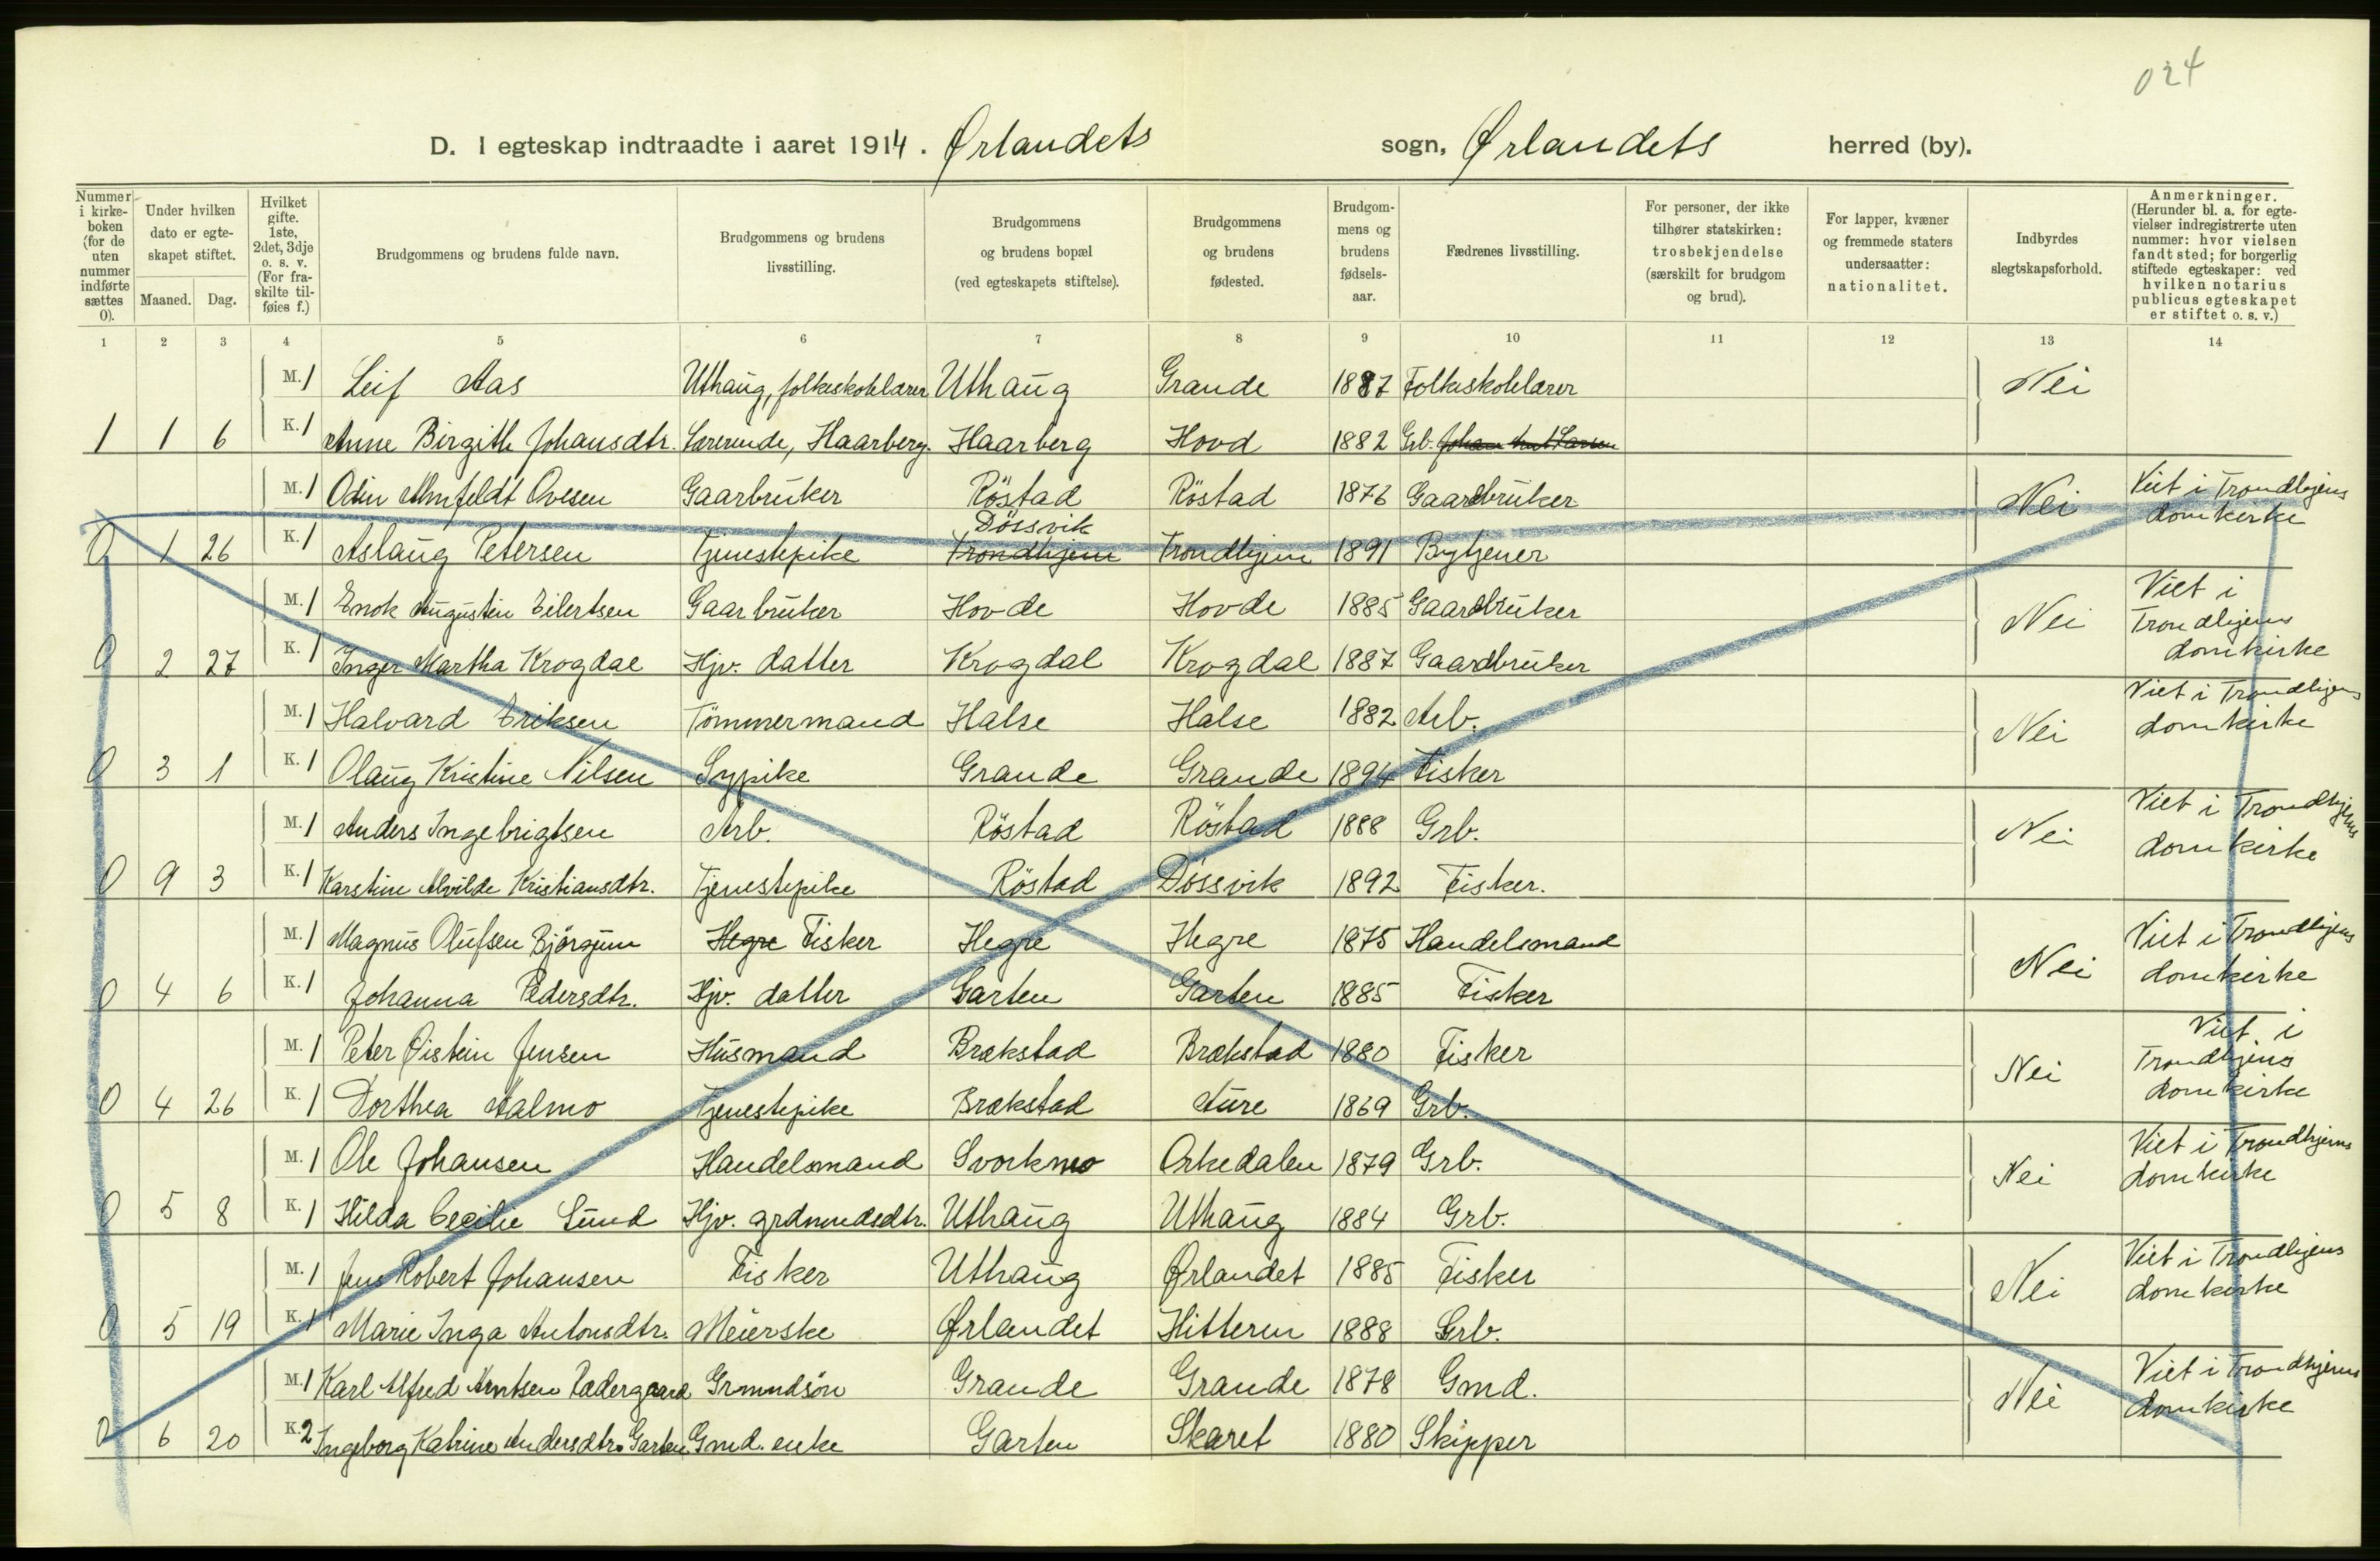 024
D. I egteskap indtraadte i aaret 1914. Ørlandets sogn, Ørlandets herred (by).
Nummer i kirke-boken (for de uten nummer indførte sættes 0).
Under hvilken dato er egte-skapet stiftet.
Maaned. Dag.
Hvilket gifte. 1ste, 2det, 3dje o. s. v. (For fra-skilte til-føies f.)
Brudgommens og brudens fulde navn.
Brudgommens og brudens livsstilling.
Brudgommens og brudens bopæl (ved egteskapets stiftelse).
Brudgommens og brudens fødested.
Brudgom-mens og brudens fødsels-aar.
Fædrenes livsstilling.
For personer, der ikke tilhører statskirken: trosbekjendelse (særskilt for brudgom og brud).
For lapper, kvæner og fremmede staters undersaatter: nationalitet.
Indbyrdes slegtskapsforhold.
Anmerkninger. (Herunder bl. a. for egte-vielser indregistrerte uten nummer: hvor vielsen fandt sted; for borgerlig stiftede egteskaper: ved hvilken notarius publicus egteskapet er stiftet o. s. v.)
1 2 3 4 5 6 7 8 9 10 11 12 13 14
M. 1 Leif Aas Uthaug, folkeskolelærer Uthaug Grande 1887 Folkeskolelærer Nei
1 1 6 K. 1 Anne Birgith Johansdtr. Lærerinde, Haarberg. Haarberg Hovd 1882 Grb. Johan
M. 1 Odin Arnfeldt Ovesen Gaarbruker Röstad Röstad 1876 Gaardbruker Nei Viet i Trondhjems domkirke
0 1 26 K. 1 Aslaug Petersen Tjenestepike Dössvik Trondhjem Trondhjem 1891 Bytjener
M. 1 Enok Augustin Eilertsen Gaarbruker Hovde Hovde 1885 Gaardbruker Nei Viet i Trondhjems domkirke
0 2 27 K. 1 Inger Martha Krogdal Hjv. datter Krogdal Krogdal 1887 Gaardbruker
M. 1 Halvard Eriksen Tömmermand Halse Halse 1882 Arb. Nei Viet i Trondhjems domkirke
0 3 1 K. 1 Olaug Kristine Nilsen Sypike Grande Grande 1894 Fisker
M. 1 Anders Ingebrigtsen Arb. Röstad Röstad 1888 Grb. Nei Viet i Trondhjems domkirke
0 9 3 K. 1 Karstine Alvilde Kristiansdtr. Tjenestepike Röstad Dössvik 1892 Fisker.
M. 1 Magnus Olufsen Bjørgum Hegre Fisker Hegre Hegre 1875 Handelsmand Nei Viet i Trondhjems domkirke
0 4 6 K. 1 Johanna Pedersdtr. Hjv. datter Garten Garten 1885 Fisker
M. 1 Peter Øistein Jensen Husmand Brækstad Brækstad 1880 Fisker Nei Viet i Trondhjems domkirke
0 4 26 K. 1 Dorthea Malmo Tjenestepike Brækstad Aure 1869 Grb.
M. 1 Ole Johansen Handelsmand Svorkmo Orkedalen 1879 Grb. Nei Viet i Trondhjems domkirke
0 5 8 K. 1 Hilda Cecilie Lund Hjv. grdmndsdtr. Uthaug Uthaug 1884 Grb.
M. 1 Jens Robert Johansen Fisker Uthaug Ørlandet 1885 Fisker Nei Viet i Trondhjems domkirke
0 5 19 K. 1 Marie Inga Antonsdtr. Meierske Ørlandet Hitteren 1888 Grb.
M. 1 Karl Alfred Arntsen Rædergaard Grmndsön Grande Grande 1878 Gmd. Nei Viet i Trondhjems domkirke
0 6 20 K. 2 Ingeborg Katrine Andersdtr. Garten Gmd. enke Garten Skaret 1880 Skipper